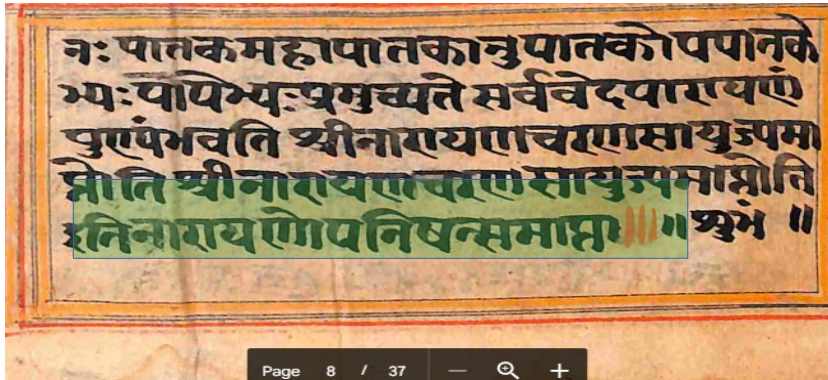 नः पातकमहापातकानुपातकोपपातके
भ्यः पापेभ्यः प्रमुच्यते सर्ववेदपारायणं
पुण्यंभवति श्रीनारायणचरणसायुज्यमा
प्नोति श्रीनारायणचरणसायुज्यमाप्नोति
इतिनारायणोपनिषत्समाप्ता ॥॥ शुभं ॥
Page 8 / 37